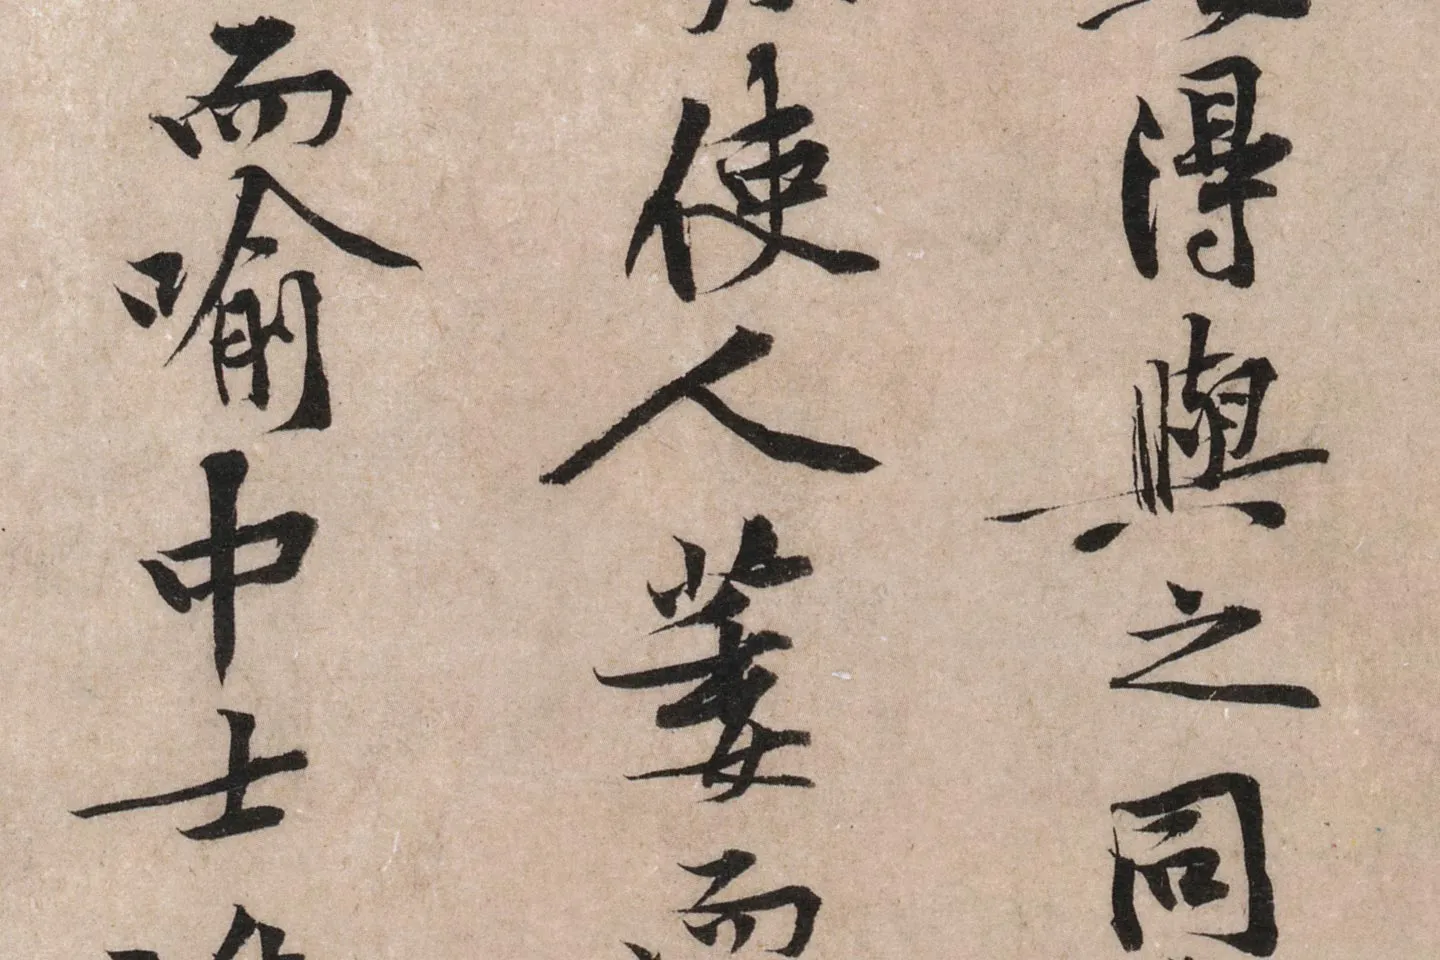 得與之同
使人萋而
而喻中士